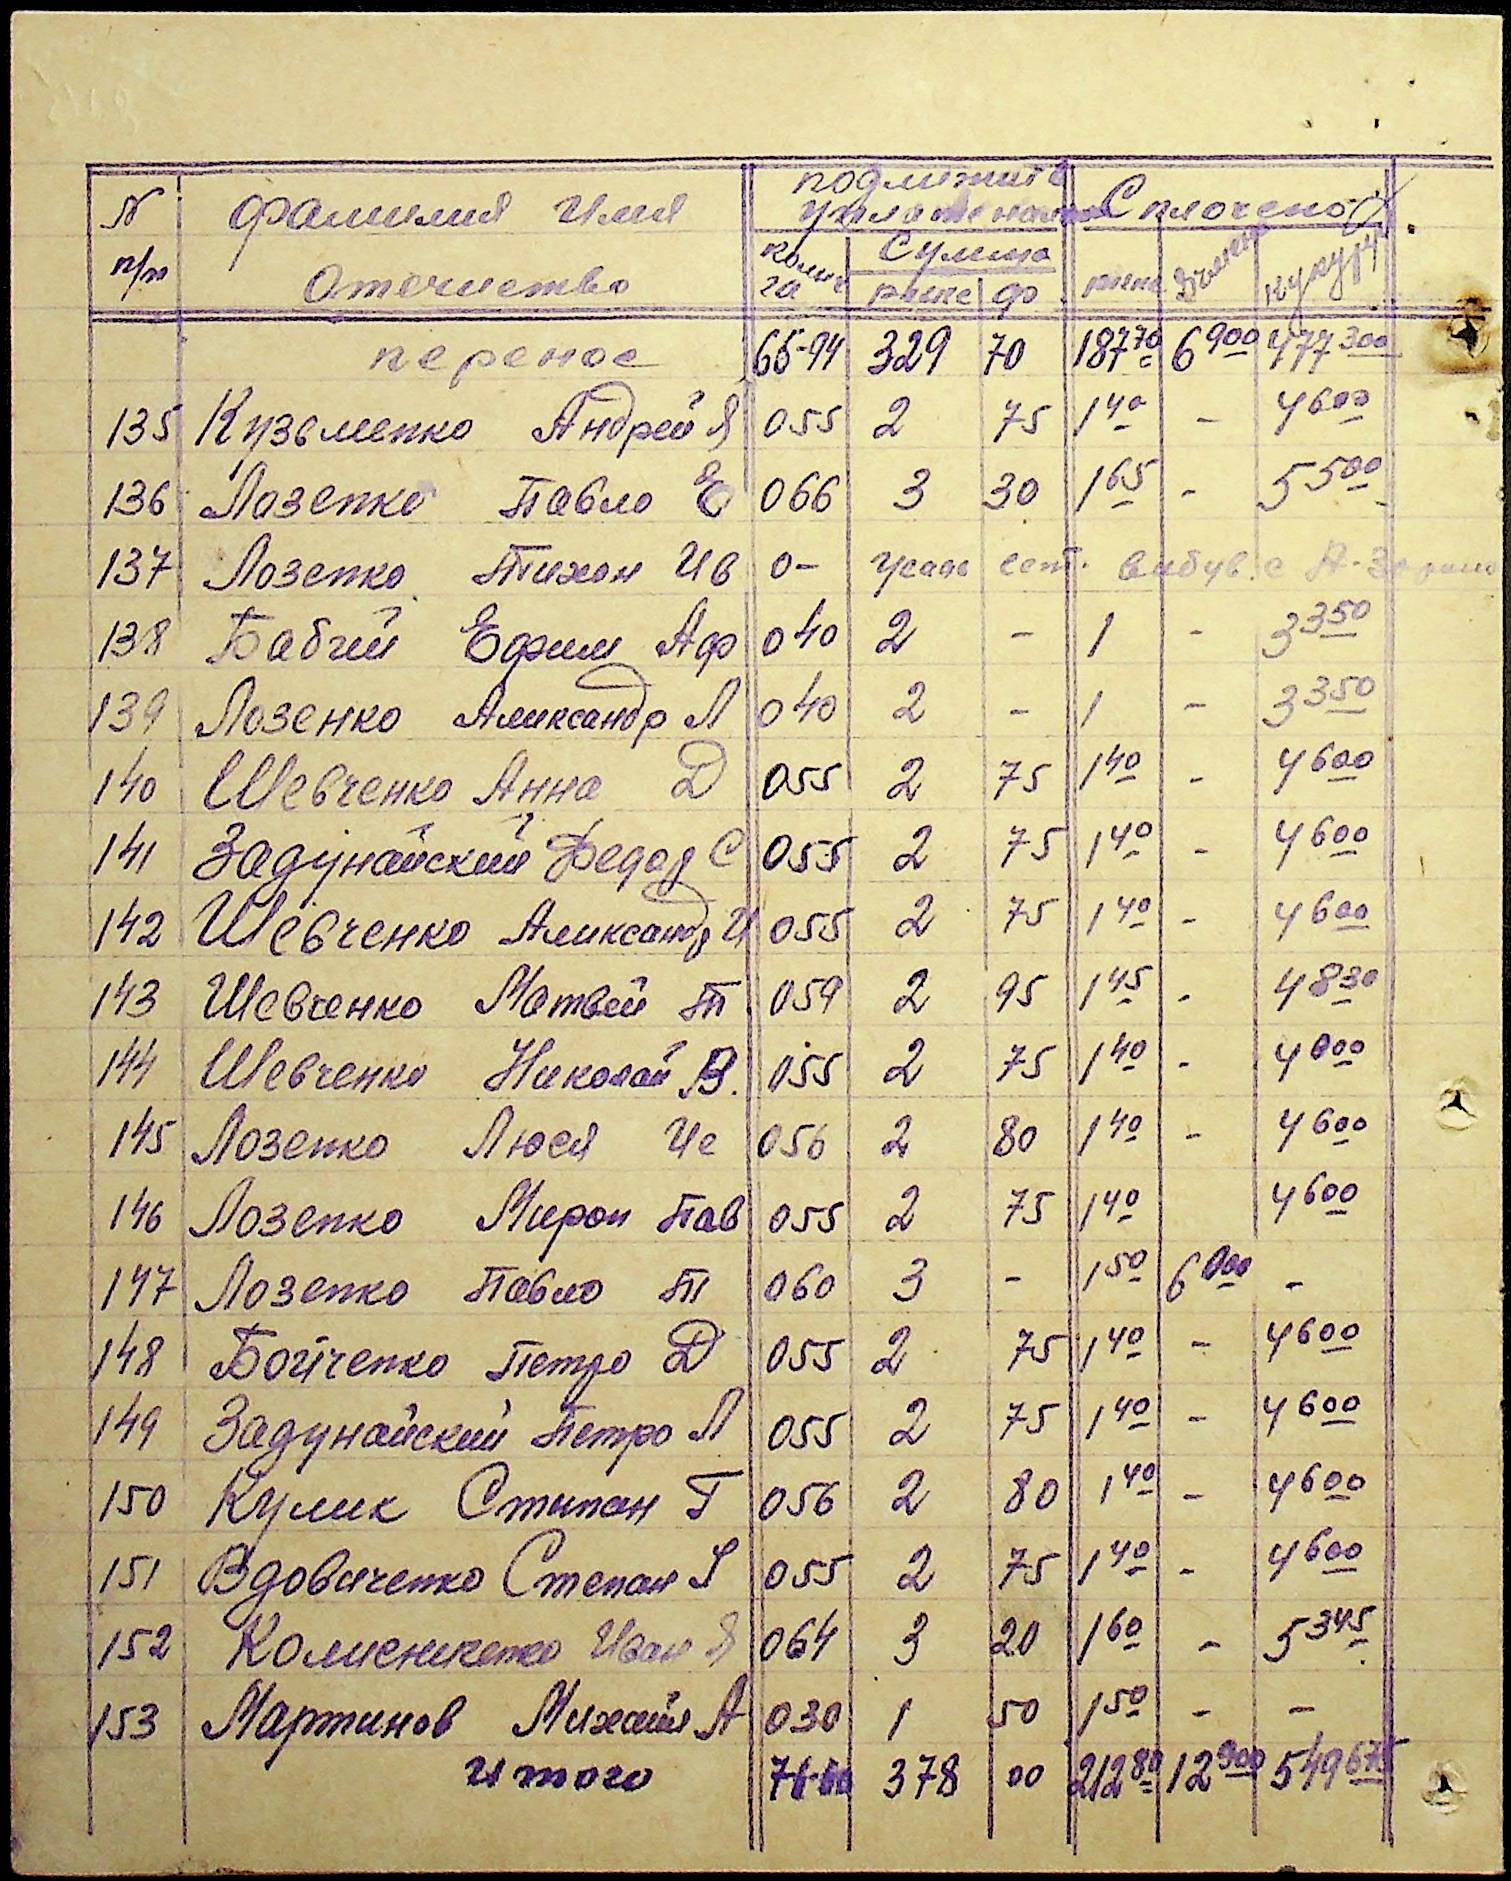 N Фамилия Имя подлижить Сплочено
п/п Отечиство уплате
колич га Сумма
рейс ф Ячмень кукуруз
перенос 65-94 329 70 187 70 6 900 477 300
135 Кузьменко Андрей Я 055 2 75 1 40 - 4 600
136 Лозенко Павло Е 066 3 30 1 65 - 5 500
137 Лозенко Тихон Ив 0- вибув с
138 Бабгий Ефим Аф 040 2 - 1 - 3 350
139 Лозенко Александр Л 040 2 - 1 - 3 350
140 Шевченко Анна Д 055 2 75 1 40 - 4 600
141 Задунайский Федор С 055 2 75 1 40 - 4 600
142 Шевченко Александр И 055 2 75 1 40 - 4 600
143 Шевченко Матвей Т 059 2 95 1 45 - 4 830
144 Шевченко Николай В. 055 2 75 1 40 - 4 600
145 Лозенко Люся Ис 056 2 80 1 40 - 4 600
146 Лозенко Мирон Пав 055 2 75 1 40 4 600
147 Лозенко Павло Т 060 3 - 1 50 6 000 -
148 Бойченко Петро Д 055 2 75 1 40 - 4 600
149 Задунайский Петро Л 055 2 75 1 40 - 4 600
150 Кулик Стипан Г 056 2 80 1 40 - 4 600
151 Вдовиченко Степан 055 2 75 1 40 - 4 600
152 Иван Я 064 3 20 1 60 - 5 345
153 Мартинов Михаил А 030 1 50 1 50 - -
Итого 378 00 212 80 12 900 549 675